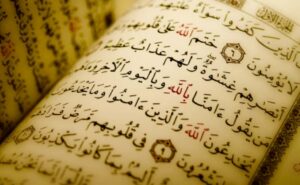 ٱلَّذِينَ كَفَرُوا۟ سَوَآءٌ
لَا يُؤْمِنُونَ ٦ خَتَمَ ٱللَّهُ عَلَىٰ
أَبْصَٰرِهِمْ غِشَٰوَةٌ وَلَهُمْ عَذَابٌ عَظِيمٌ
مَن يَقُولُ ءَامَنَّا بِٱللَّهِ وَبِٱلْيَوْمِ ٱلْءَاخِرِ وَمَا
يُخَٰدِعُونَ ٱللَّهَ وَٱلَّذِينَ ءَامَنُوا۟ وَمَا يَخْدَعُونَ
يَشْعُرُونَ ٩ فِى قُلُوبِهِم مَّرَضٌ
أَلِيمٌۢ بِمَا كَانُوا۟ يَكْذِبُونَ